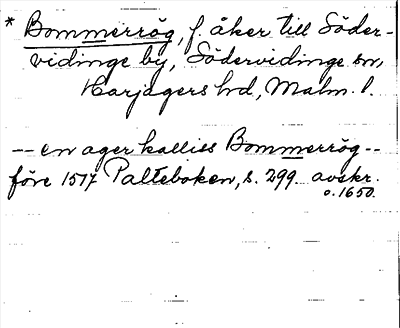 * Bommerrög, f. åker till Söder-
vidinge by, Södervidinge sn,
Harjagers hd, Malm. l.
-- en ager kalliss Bommerrög --
före 1517 Palteboken, s. 299. avskr.
o. 1650.